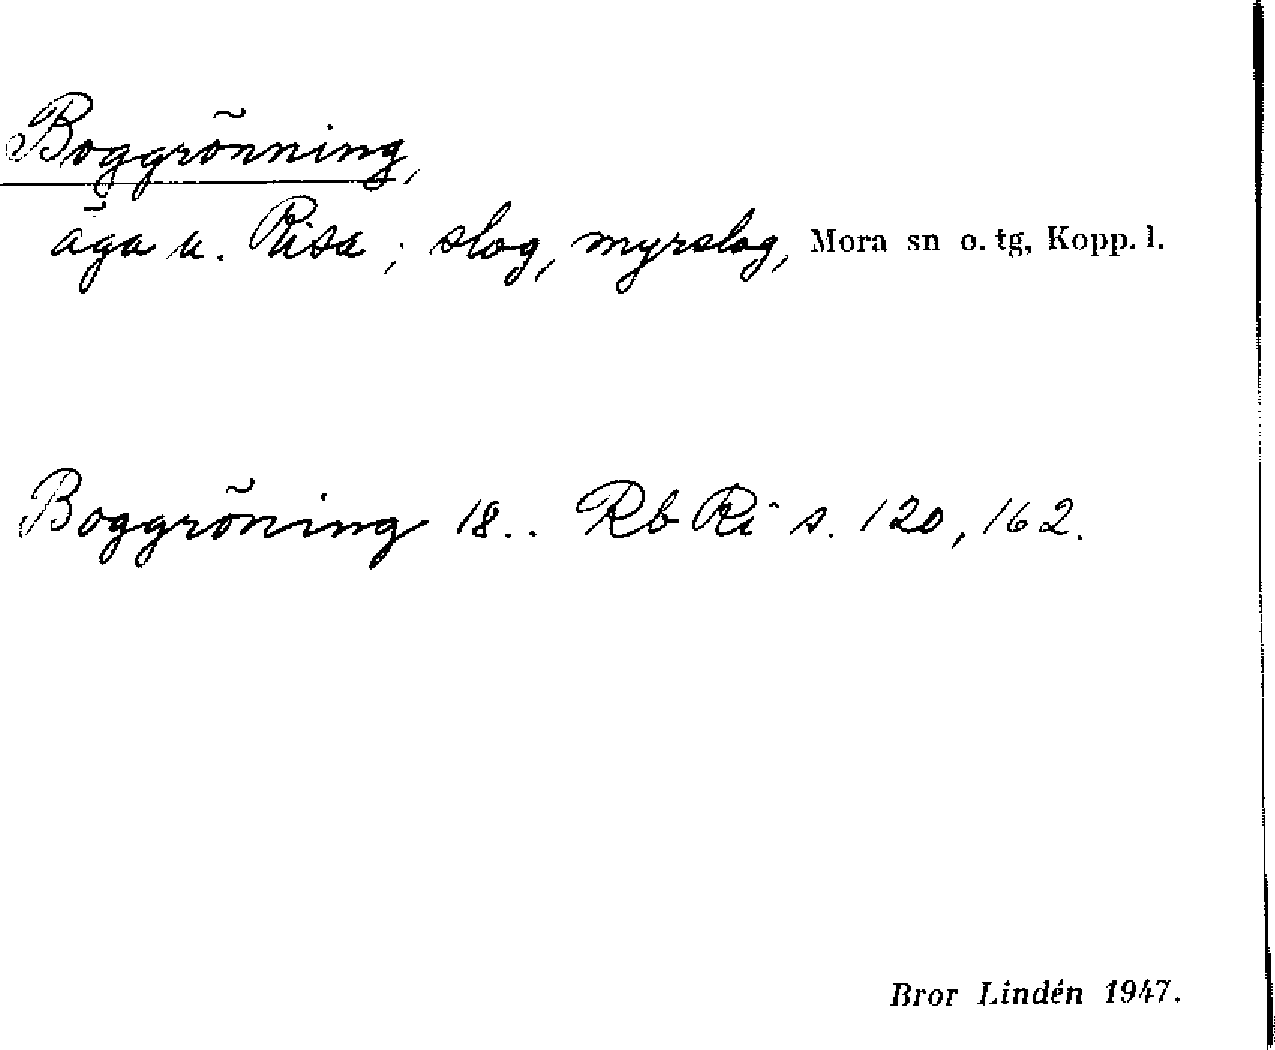 Boggrönning,
äga u. Risa; slog, myrslog, Mora sn o. tg, Kopp. l.
Boggröning 18.. Rb Ri s. 120, 162.
Bror Lindén 1947.